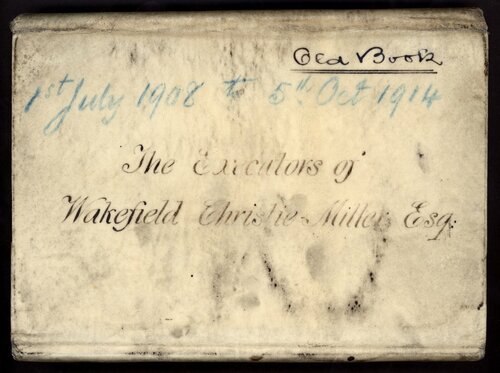 Old Book
1st July 1908 to 5th Oct 1914
The Executors of
Wakefield Christie-Miller Esq: